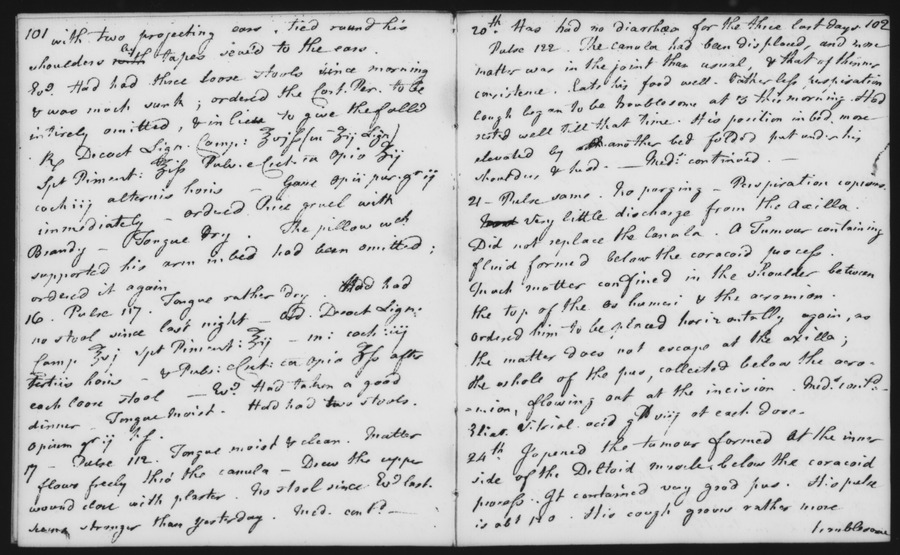 101 with two projecting ears, tied round his
shoulders by tapes sewed to the ears.
Evg. Had had three loose stools since morning
& was much sunk; ordered the Per. to be
intirely omitted, & in lieu to give the follg
℞ Decoct Lign. Camp:
Spt Piment: Pulv. e Cret: cum Opio
coch iij alternis horis — Gave opii pur. gr ij
immediately — ordered Rice gruel with
Brandy — Tongue Dry. The pillow wch
supported his arm in bed had been omitted;
ordered it again
16. Pulse 117. Tongue rather dry. Had had
no stool since last night — Decoct Lign:
Camp Spt Piment: — m: coch: iiij
tertiis horis — & Pulv: e Cret: cum Opio after
each loose stool — Evg. Had taken a good
dinner — Tongue moist. Had had two stools.
Opium gr ij
17 — Pulse 112. Tongue moist & clean. Matter
flows freely thro' the canula — Drew the upper
wound close with plaster. No stool since Evg last.
seems stronger than yesterday. Med. contd —
102
20th Has had no diarrhœa for the three last days.
Pulse 122. The canula had been displaced, and more
matter was in the joint than usual, & that of thinner
consistence. Eats his food well. Rather less perspiration
cough began to be troublesome at 3 this morning. Had
rested well till that time. His position in bed more
elevated by another bed folded put under his
shoulders & head — Med: continued. —
21 — Pulse same. No purging — Perspiration copious.
Very little discharge from the axilla.
Did not replace the Canula. A Tumour containing
fluid formed below the coracoid process.
Much matter confined in the shoulder between
the top of the os humeri & the acromion.
Ordered him to be placed horizontally again, as
the matter does not escape at the axilla;
the whole of the pus, collected below the acro-
-mion, flowing out at the incision. Med: contd —
Vitriol. acid at each dose —
24th. Jopened the tumour formed at the inner
side of the Deltoid muscle below the coracoid
process. It contained very good pus. His pulse
is abt 110. His cough grows rather more
troublesome